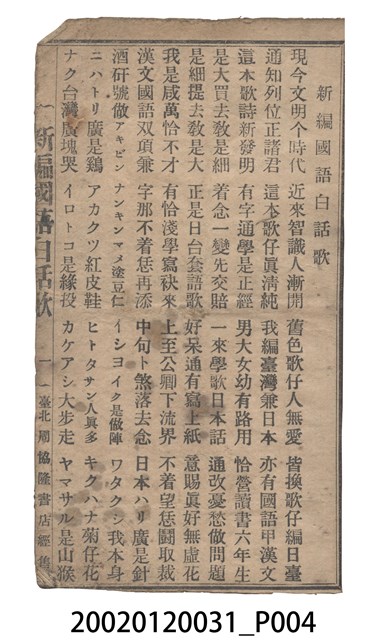 新編國語白話歌
現今文明个時代 近來智識人漸開 舊色歌仔人無愛 皆換歌仔編日臺
通知列位正諸君 這本歌仔眞淸純 我編臺灣兼日本 亦有國語甲漢文
這本歌詩新發明 有字通學是正經 男大女幼有路用 恰營讀書六年生
是大買去敎是細 着念一變先交賠 一來學歌日本話 通改憂愁做問題
是細提去敎是大 正是日台套語歌 好呆通有寫上紙 意賜眞好無虛花
我是咸萬恰不才 有恰淺學寫袂來 上至公卿下流界 不着望恁鬪取裁
漢文國語双項兼 字那不着恁再添 中句ト煞落去念 日本ハリ廣是針
酒矸號做アキビン ナンキンマメ塗豆仁 イシヨイク是做陣 ワタクシ我本身
ニハトリ廣是鷄 アカクツ紅皮鞋 ヒトタサン人眞多 キクハナ菊仔花
ナク台灣廣塊哭 イロトコ是緣投 カケアシ大步走 ヤマサル是山猴
新編國語白話歌 一 臺北 協隆書店經售
20020120031_P004